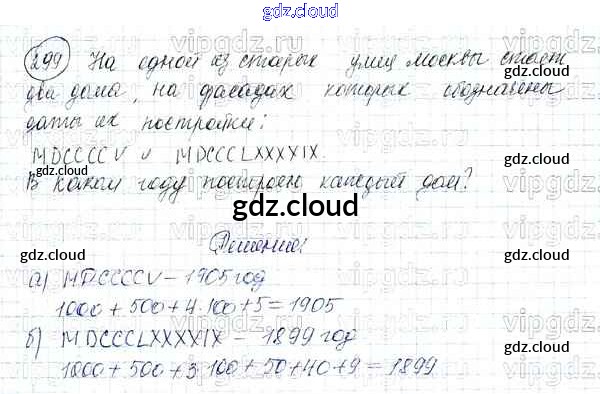 gdz.cloud
299 На одной из старых улиц Москвы стоят
два дома, на фасадах которых обозначены
даты их постройки:
MDCCCCV и MDCCCLXXXXIX.
В каком году построен каждый дом?
gdz.cloud
Решение:
а) MDCCCCV – 1905 год
1000 + 500 + 4·100 + 5 = 1905
б) MDCCCLXXXXIX – 1899 год
1000 + 500 + 3·100 + 50 + 40 + 9 = 1899
gdz.cloud